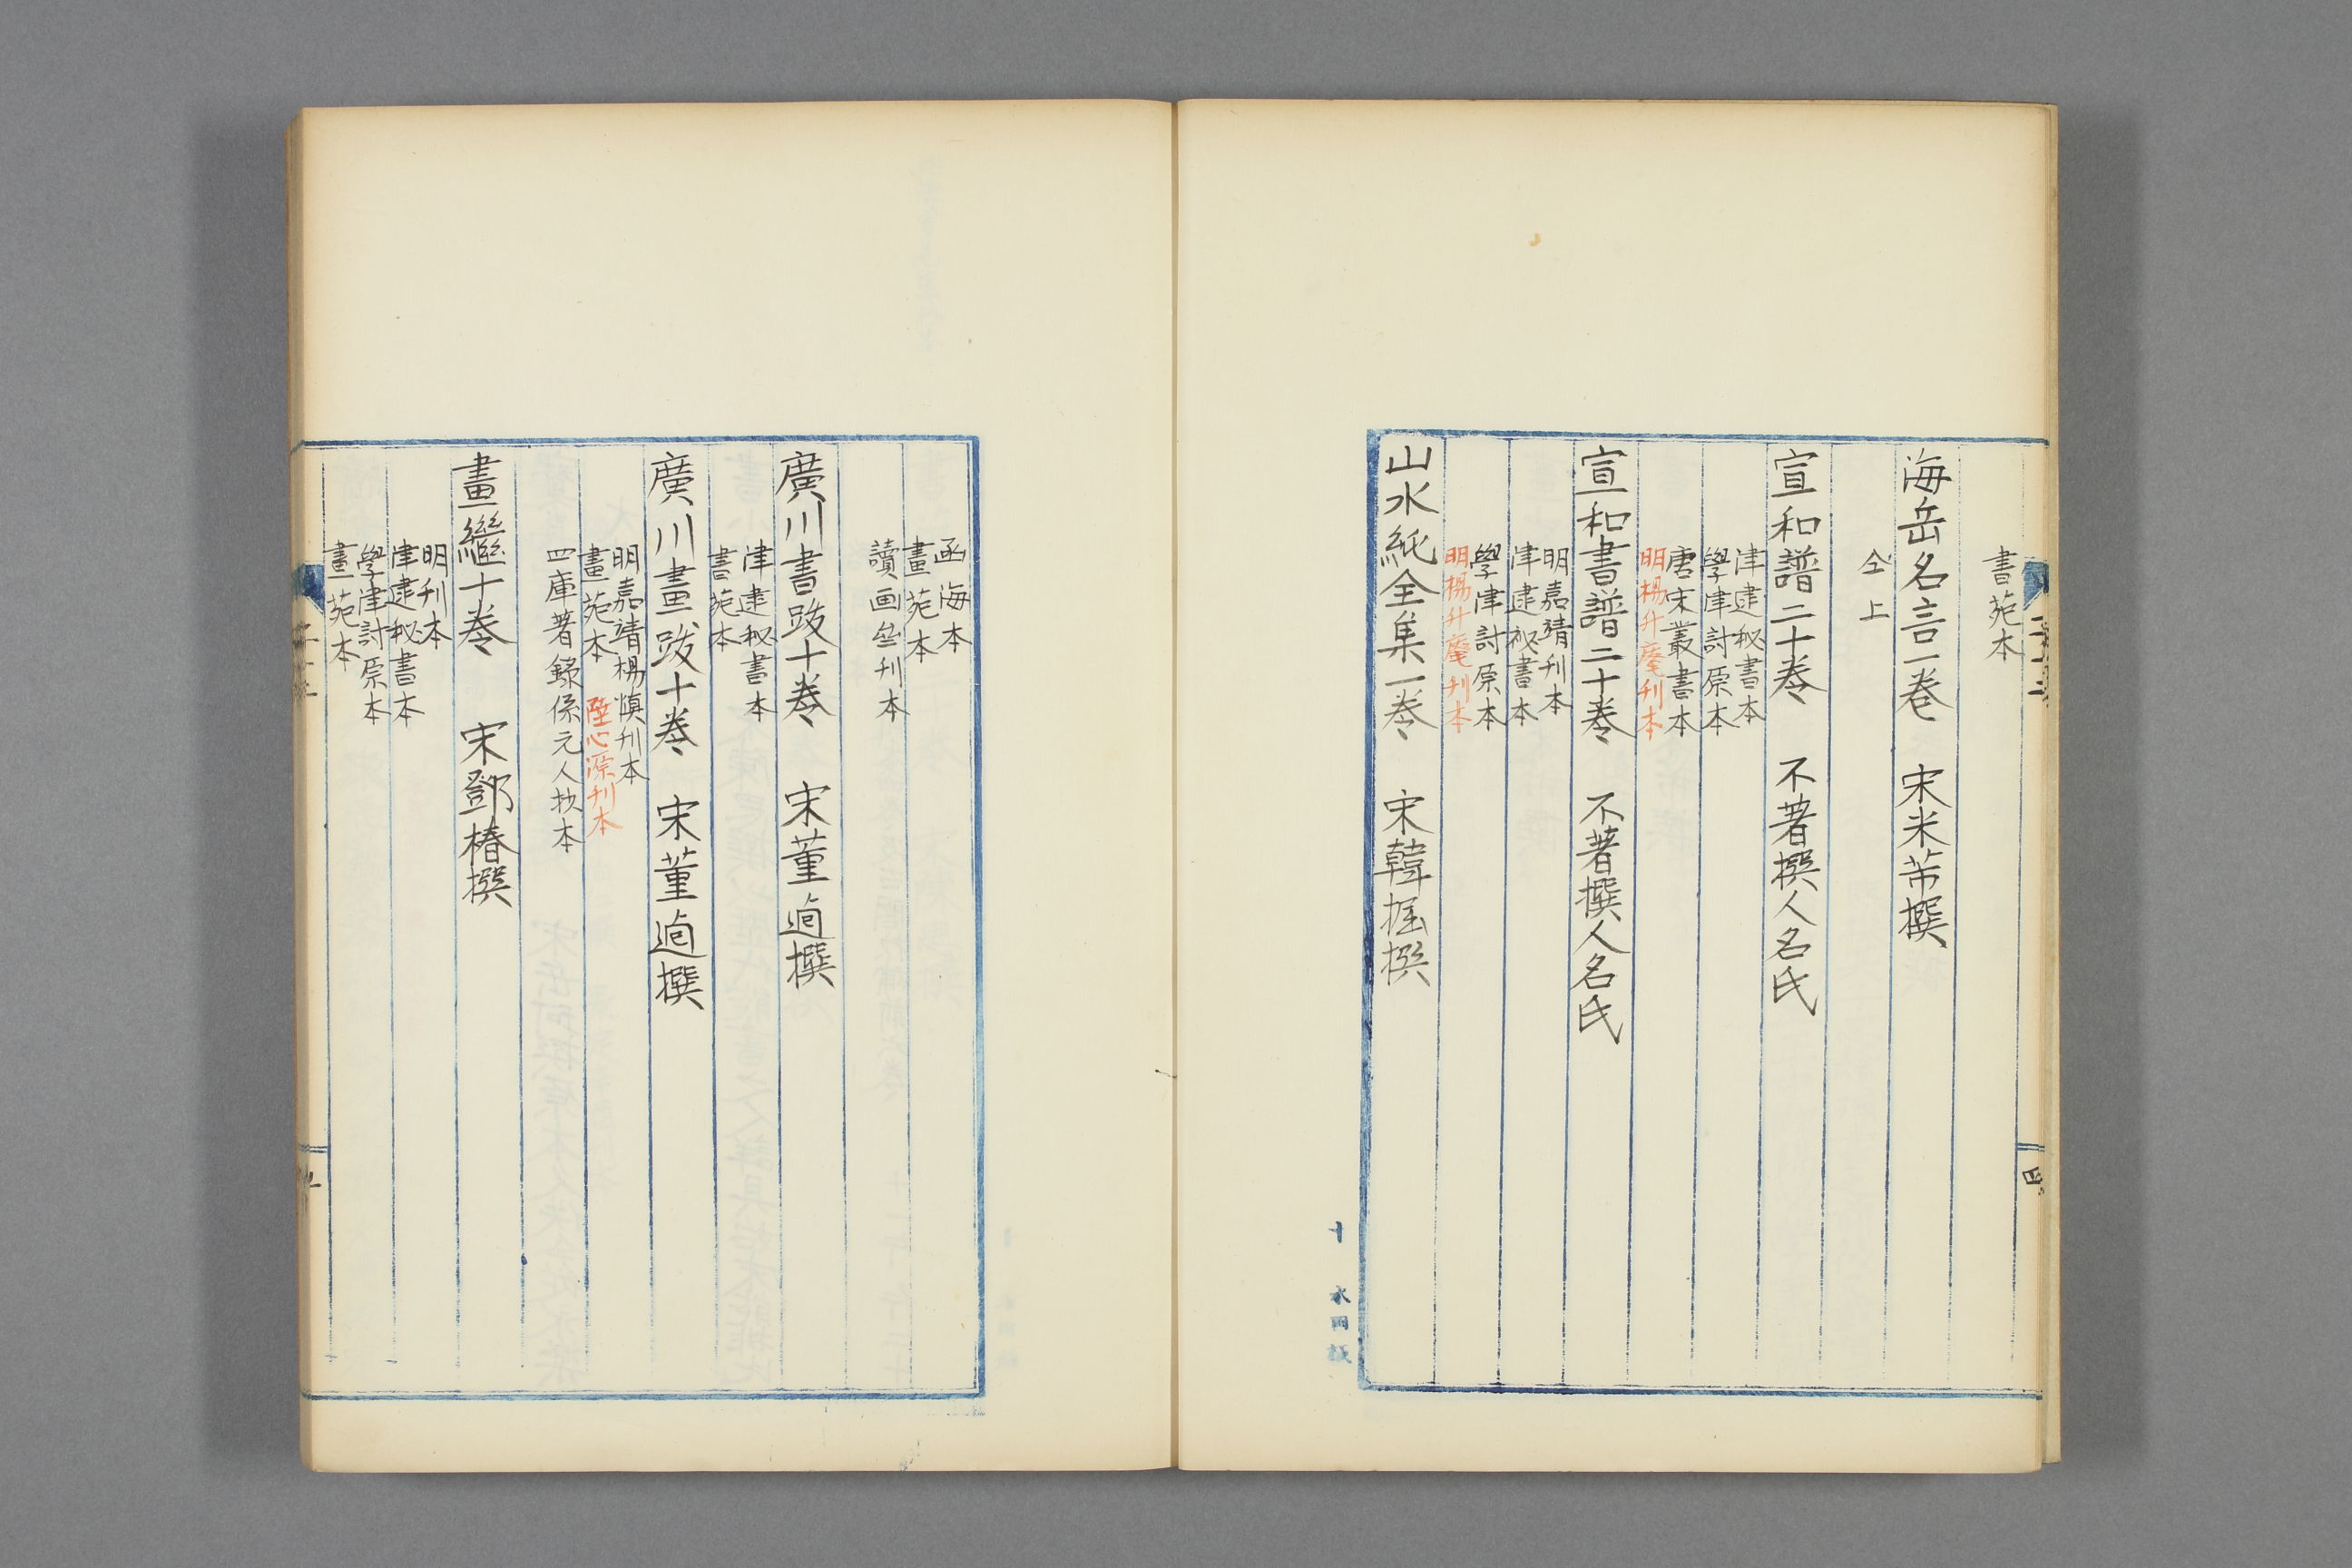 書苑本
海岳名言一卷　宋米芾撰
仝上
宣和譜二十卷　不著撰人名氏
津逮秘書本
學津討原本
唐宋叢書本
明楊升庵刊本
宣和書譜二十卷　不著撰人名氏
明嘉靖刊本
津逮秘書本
學津討原本
明楊升庵刊本
山水純全集一卷　宋韓拙撰
四
十
函海本
畫苑本
讀画斋刊本
廣川書跋十卷　宋董逌撰
津逮秘書本
書苑本
廣川畫跋十卷　宋董逌撰
明嘉靖楊慎刊本
畫苑本　陸心源刊本
四庫著錄係元人抄本
畫繼十卷　宋鄧椿撰
明刊本
津逮秘書本
學津討原本
畫苑本